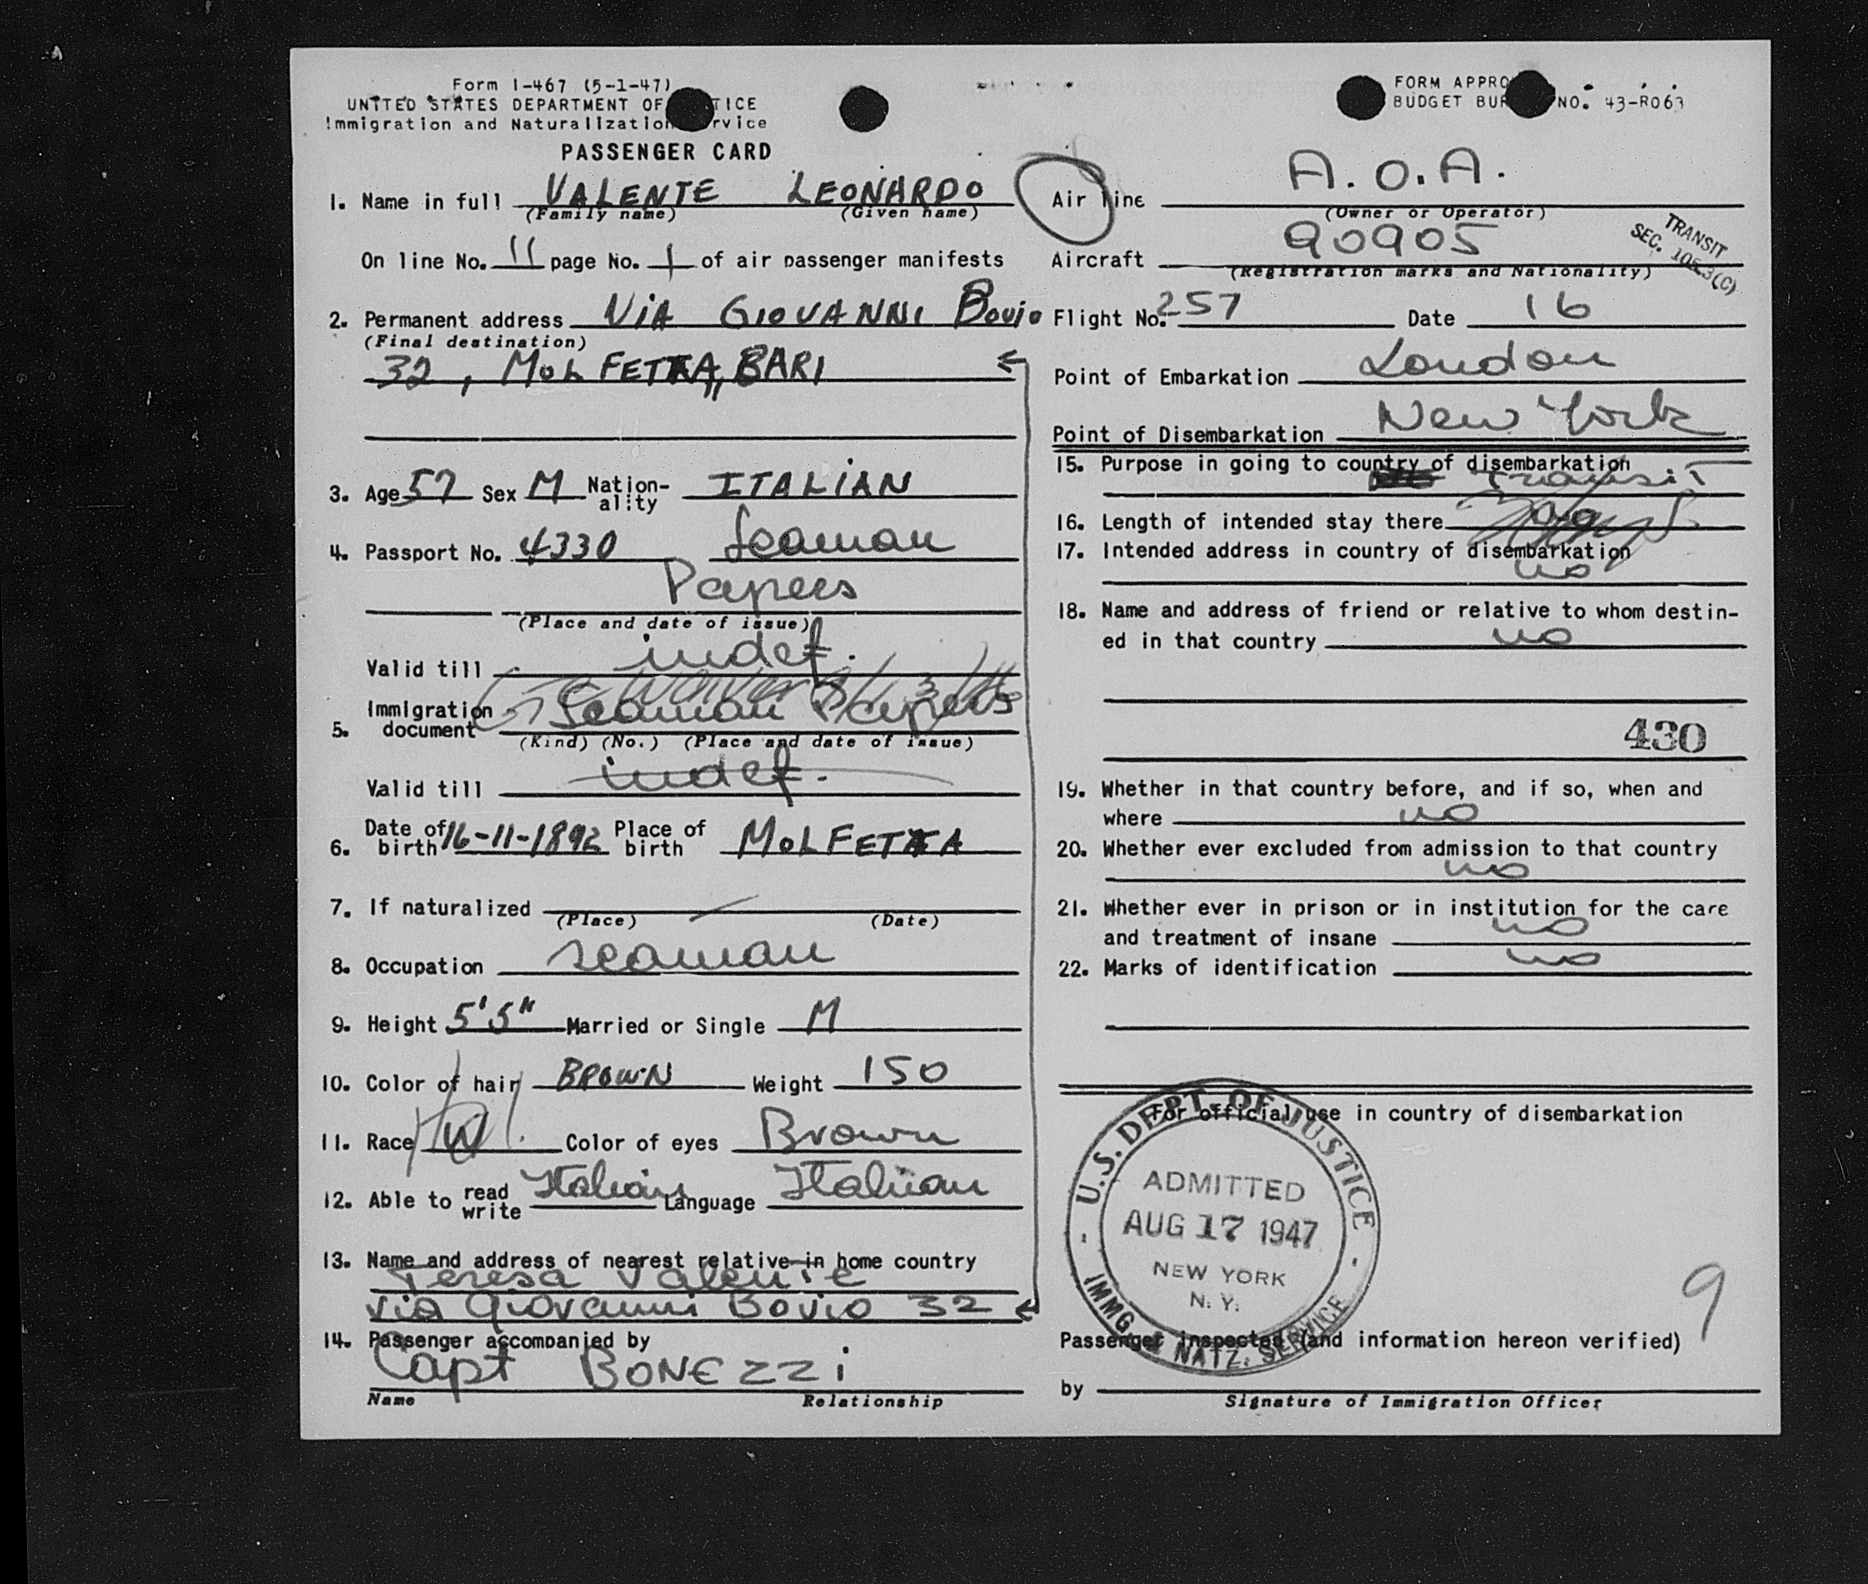 Form I-467 (5-1-47)
UNITED STATES DEPARTMENT OF TICE
Immigration and Naturalization rvice
PASSENGER CARD
1. Name in full VALENTE LEONARDO
(Family name) (Given name)
On line No. 11 page No. 1 of air passenger manifests
2. Permanent address VIA GIOVANNI Bovio
(Final destination)
32, MOLFETTA, BARI
3. Age 57 Sex M Nation-ality ITALIAN
4. Passport No. 4330 Seaman
Papers
(Place and date of issue)
Valid till indef.
5. Immigration document Seaman Papers
(Kind) (No.) (Place and date of issue)
Valid till indef.
6. Date of birth 16-11-1892 Place of birth MOLFETTA
7. If naturalized —
(Place) (Date)
8. Occupation seaman
9. Height 5'5" Married or Single M
10. Color of hair BROWN Weight 150
11. Race W Color of eyes Brown
12. Able to read write Italian Language Italian
13. Name and address of nearest relative in home country
Teresa Valente
via Giovanni Bovio 32
14. Passenger accompanied by
Capt BONEZZI
Name Relationship
FORM APPRO
BUDGET BUR NO. 43-R063
Air line A.O.A.
(Owner or Operator)
TRANSIT
SEC. 105.3(C)
Aircraft 90905
(Registration marks and Nationality)
Flight No. 257 Date 16
Point of Embarkation London
Point of Disembarkation New York
15. Purpose in going to country of disembarkation
transit
16. Length of intended stay there
17. Intended address in country of disembarkation
no
18. Name and address of friend or relative to whom destin-
ed in that country no
430
19. Whether in that country before, and if so, when and
where no
20. Whether ever excluded from admission to that country
no
21. Whether ever in prison or in institution for the care
and treatment of insane no
22. Marks of identification no
For official use in country of disembarkation
U.S. DEPT. OF JUSTICE
ADMITTED
AUG 17 1947
NEW YORK
N. Y.
IMMG. & NATZ. SERVICE
9
Passenger inspected (and information hereon verified)
by
Signature of Immigration Officer